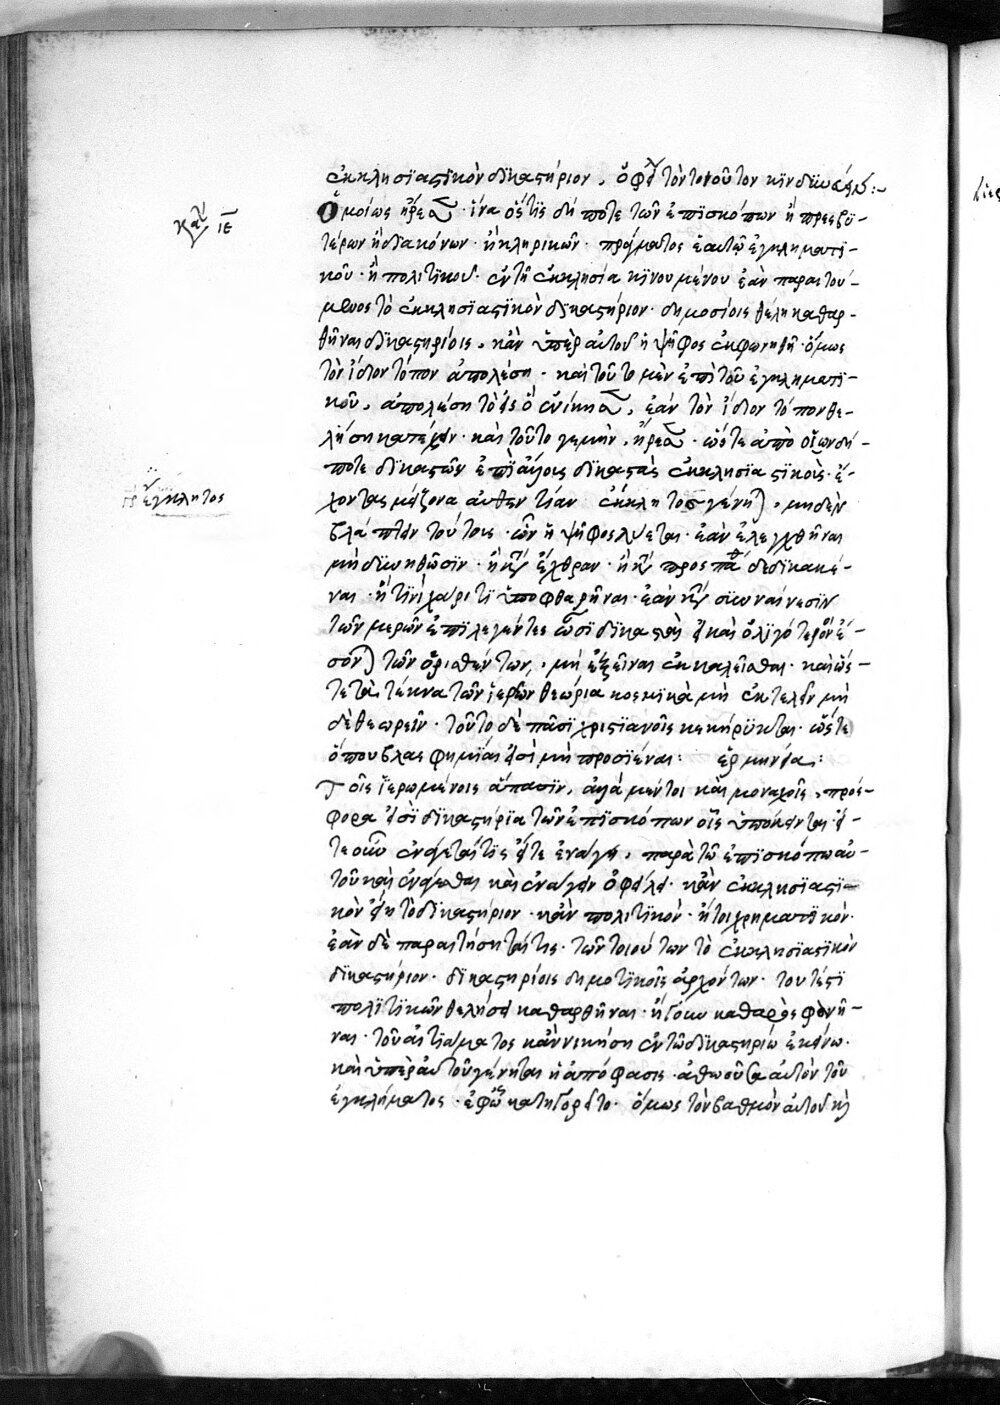 ἐκκλησιαστικὸν δικαστήριον, ὀφείλει τὸν τοιοῦτον κινδυνεύειν:-
κανὼν ιε
Ὁμοίως ἤρεσεν ἵνα ὅστις δήποτε τῶν ἐπισκόπων ἢ πρεσβυ-
τέρων ἢ διακόνων· ἢ κληρικῶν· πράγματος ἑαυτῷ ἐγκληματι-
κοῦ· ἢ πολιτικοῦ· ἐν τῇ ἐκκλησίᾳ κινουμένου ἐὰν παραιτού-
μενος τὸ ἐκκλησιαστικὸν δικαστήριον· δημοσίοις θέλῃ καθαρ-
θῆναι δικαστηρίοις, κἂν ὑπὲρ αὐτοῦ ἡ ψῆφος ἐκφωνηθῇ· ὅμως
τὸν ἴδιον τόπον ἀπολέσῃ· καὶ τοῦτο μὲν ἐπὶ τοῦ ἐγκληματι-
κοῦ, ἀπολέσῃ τοῦτο ὃ ἐνίκησεν, ἐὰν τὸν ἴδιον τόπον θε-
λήσῃ κατέχειν· καὶ τοῦτο γε μὴν, ἤρεσεν· ὥστε ἀπὸ οἱωνδή-
ποτε δικαστῶν ἐπὶ ἄλλοις δικαστὰς ἐκκλησιαστικοὺς· ἔ-
ἔγκλητος
χοντας μείζονα αὐθεντίαν ἔκκλητος γένηται, μηδὲν
βλάπτειν τούτοις· ὧν ἡ ψῆφος λύεται· ἐὰν ἐλεγχθῆναι
μὴ δυνηθῶσιν· ἢ κατ' ἔχθραν· ἢ κατὰ προσπάθειαν δεδικακέ-
ναι· ἤ τινι χάριτι ὑποφθαρῆναι· ἐὰν κατὰ συναίνεσιν
τῶν μερῶν ἐπιλεγέντες ὦσι δικασταὶ εἰ καὶ ὀλιγότερον εἴ-
σονται τῶν ὁρισθέντων, μὴ ἐξεῖναι ἐκκαλεῖσθαι· καὶ ὥσ-
τε τὰ τέκνα τῶν ἱερέων θεώρια κοσμικὰ μὴ ἐκτελεῖν μὴ
δὲ θεωρεῖν· τοῦτο δὲ πᾶσι χριστιανοῖς κεκήρυκται· ὥστε
ὅπου βλασφημίαι εἰσὶ μὴ προσιέναι: ἑρμηνεία:
Τοῖς ἱερωμένοις ἅπασιν, ἀλλὰ μέντοι καὶ μοναχοῖς, πρόσ-
φορα εἰσὶ δικαστήρια τῶν ἐπισκόπων οἷς ὑπόκεινται εἴ-
τε οὖν ἐνάγεταί τις εἴτε ἐνάγει, παρὰ τῷ ἐπισκόπῳ αὐ-
τοῦ καὶ ἐνάγεσθαι καὶ ἐνάγειν ὀφείλει· κἂν ἐκκλησιαστι-
κὸν εἴη τὸ δικαστήριον· κἂν πολιτικὸν· ἤτοι χρηματικὸν·
ἐὰν δὲ παραιτήσηταί τις· τῶν τοιούτων τὸ ἐκκλησιαστικὸν
δικαστήριον· δικαστηρίοις δημοτικοῖς ἀρχόντων· τουτέστι
πολιτικῶν θελήσει καθαρθῆναι· ἤγουν καθαρὸς φανῆ-
ναι· τοῦ αἰτιάματος κἂν νικήσῃ ἐν τῷ δικαστηρίῳ ἐκείνῳ·
καὶ ὑπὲρ αὐτοῦ γένηται ἡ ἀπόφασις· ἀθωοῦσα αὐτὸν τοῦ
ἐγκλήματος· ἐφ' ᾧ κατηγορεῖτο· ὅμως τὸν βαθμὸν αὐτοῦ καὶ